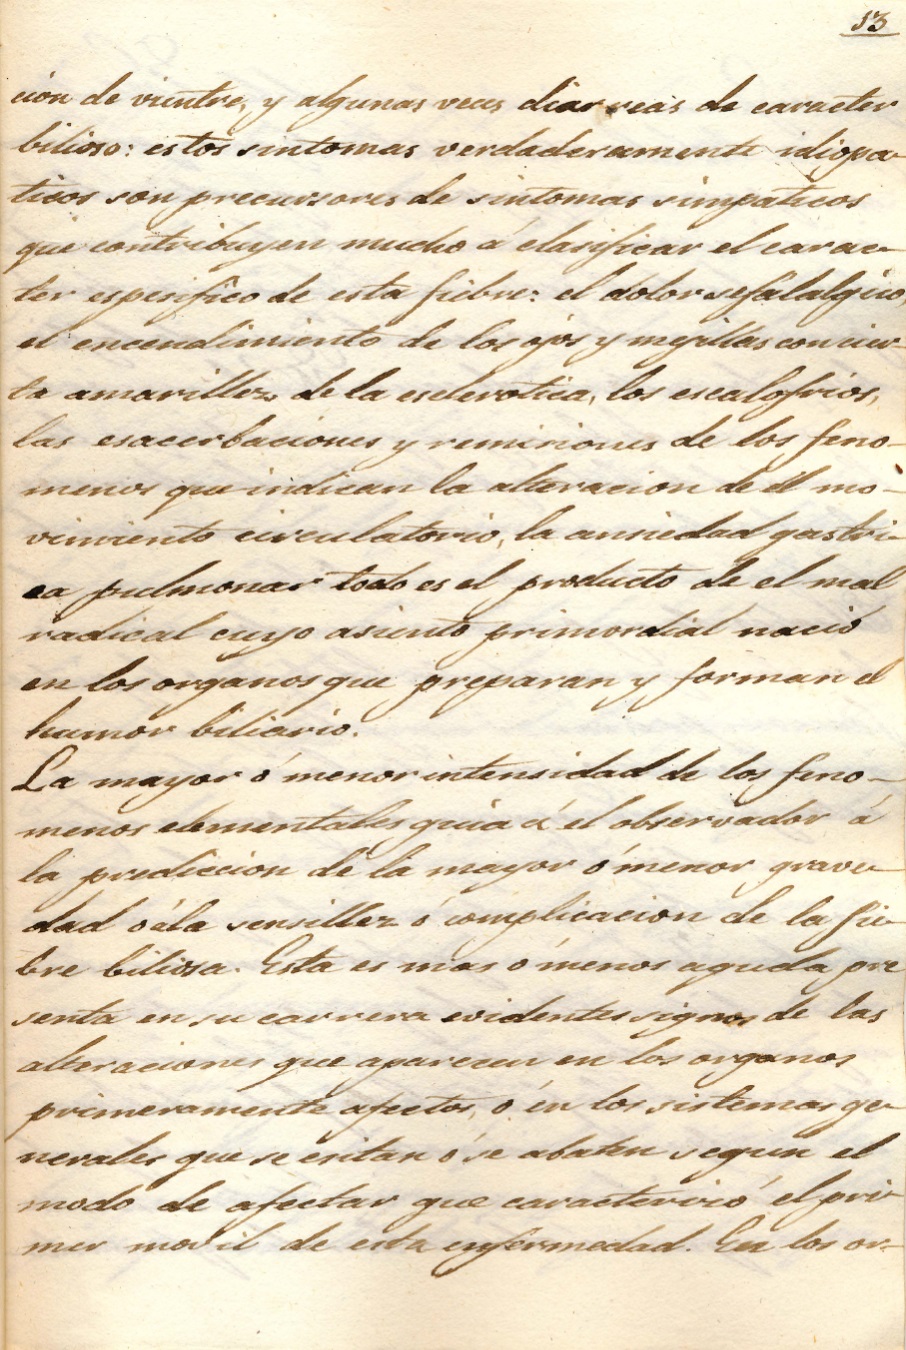 53
cion de vientre, y algunas veces diarreas de caracter
bilioso: estos sintomas verdaderamente idiopa-
ticos son precursores de sintomas simpaticos
que contribuyen mucho á clasificar el carac-
ter espesifico de esta fiebre: el dolor sefalalgico,
el encendimiento de los ojos y mejillas con cier-
ta amarillez de la esclerotica, los escalofrios,
las esacerbaciones y remisiones de los feno-
menos que indican la alteracion de él mo-
vimiento circulatorio, la ansiedad gastri-
ca pulmonar todo es el producto de el mal
radical cuyo asiento primordial nació
en los organos que preparan y forman el
humor biliario.
La mayor ó menor intensidad de los feno-
menos elementales guia á el observador á
la prediccion de la mayor ó menor grave-
dad o á la sensillez ó complicacion de la fie-
bre biliosa. Esta es mas ó menos aguda pre
senta en su carrera evidentes signos de las
alteraciones que aparecen en los organos
primeramente afectos, ó en los sistemas ge-
nerales que se esitan ó se abaten segun el
modo de afectar que caracterizó el pri-
mer movil de esta enfermedad. En los or-